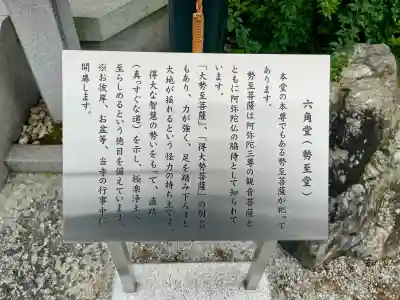 六角堂(勢至堂)
本堂の本尊でもある勢至菩薩が祀って
あります。
勢至菩薩は阿弥陀三尊の観音菩薩と
ともに阿弥陀仏の脇侍として知られて
います。
「大勢至菩薩」、「得大勢菩薩」の別名
もあり、力が強く、足を踏み下ろすと
大地が揺れるという怪力の持ち主です。
得大な智慧の勢いをもって、直路
(真っすぐな道)を示し、極楽浄土へ
至らしめるという徳目を備えています。
※お彼岸、お盆等、当寺の行事中に
開扉します。